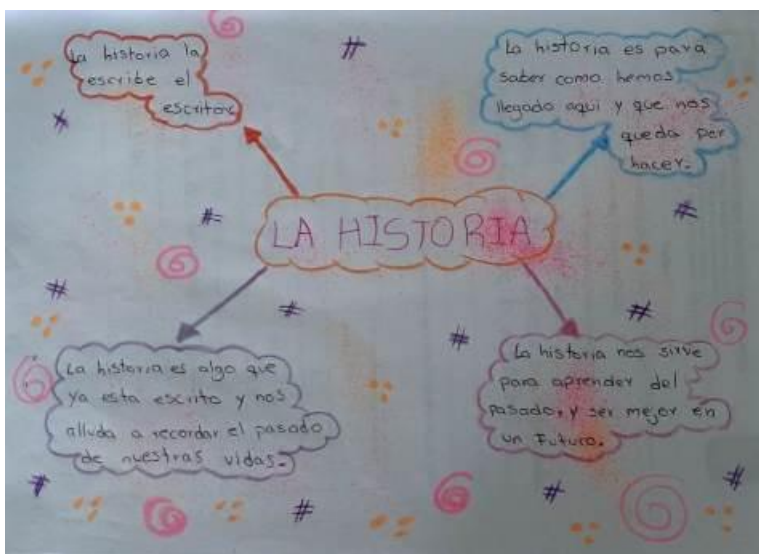 La historia la
escribe el
escritor
La historia es para
saber como hemos
llegado aqui y que nos
queda por
hacer.
LA HISTORIA
La historia es algo que
ya esta escrito y nos
alluda a recordar el pasado
de nuestras vidas.
La historia nos sirve
para aprender del
pasado, y ser mejor en
un Futuro.